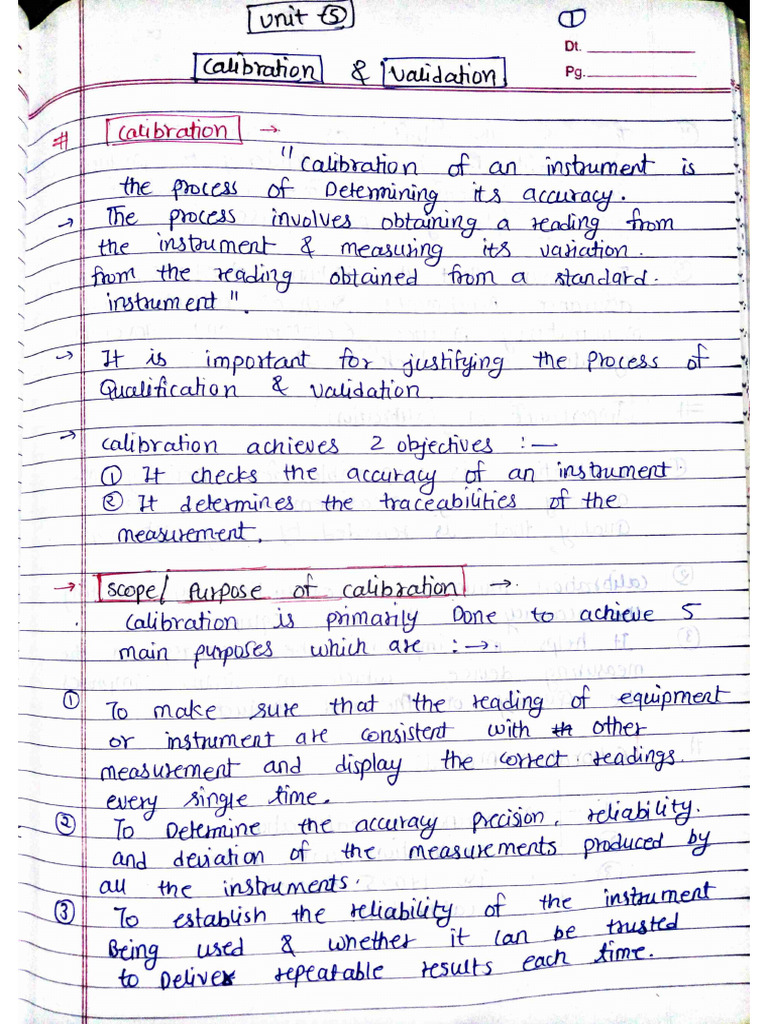 Unit-5
①
Dt.
Calibration & Validation
Pg.
# Calibration →
" Calibration of an instrument is
the process of Determining its accuracy.
→ The process involves obtaining a reading from
the instrument & measuring its variation.
from the reading obtained from a standard.
instrument".
→ It is important for justifying the process of
Qualification & validation
→ calibration achieves 2 objectives :—
① It checks the accuracy of an instrument.
② It determines the traceabilities of the
measurement.
→ Scope/ Purpose of calibration →.
calibration is primarily Done to achieve 5
main purposes which are :→.
① To make sure that the reading of equipment
or instrument are consistent with other
measurement and display the correct readings.
every single time.
② To Determine the accuracy precision, reliability.
and deviation of the measurements produced by
all the instruments.
③ To establish the reliability of the instrument
Being used & whether it can be trusted
to Deliver repeatable results each time.